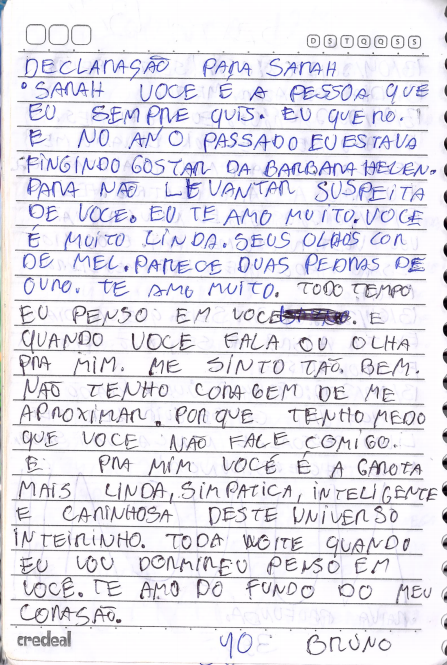 D S T Q Q S S
DECLARAÇÃO PARA SARAH
• SARAH VOCE É A PESSOA QUE
EU SEMPRE QUIS. EU QUERO.
E NO ANO PASSADO EU ESTAVA
FINGINDO GOSTAR DA BARBARA HELEN.
PARA NÃO LEVANTAR SUSPEITA
DE VOCE. EU TE AMO MUITO. VOCE
É MUITO LINDA. SEUS OLHOS COR
DE MEL. PARECE DUAS PEDRAS DE
OURO. TE AMO MUITO. TODO TEMPO
EU PENSO EM VOCE. E
QUANDO VOCE FALA OU OLHA
PRA MIM. ME SINTO TÃO. BEM.
NÃO TENHO CORAGEM DE ME
APROXIMAR. PORQUE TENHO MEDO
QUE VOCE NÃO FALE COMIGO.
E PRA MIM VOCÊ É A GAROTA
MAIS LINDA, SIMPATICA, INTELIGENTE
E CARINHOSA DESTE UNIVERSO
INTEIRINHO. TODA NOITE QUANDO
EU VOU DORMIR EU PENSO EM
VOCÊ. TE AMO DO FUNDO DO MEU
CORASÃO.
credeal 40 BRUNO